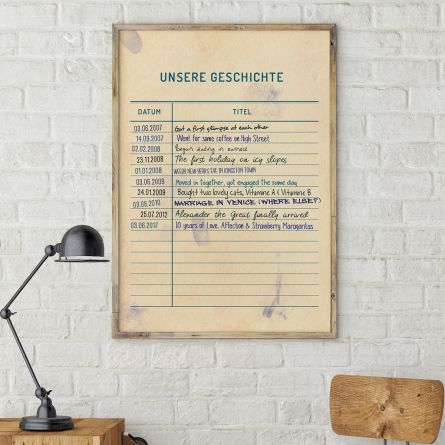 UNSERE GESCHICHTE
DATUM TITEL
03.06.2007 Got a first glimpse at each other
14.09.2007 Went for some coffee on High Street
02.02.2008 Began dating in earnest
23.11.2008 The first holiday on icy slopes
01.01.2008 NEW YEAR'S EVE IN KINGSTON TOWN
03.06.2009 Moved in together, got engaged the same day
24.01.2009 Bought two lovely cats, Vitamine A & Vitamine B
03.06.2010 MARRIAGE IN VENICE (WHERE ELSE?)
25.07.2012 Alexander the Great finally arrived
03.06.2017 10 years of Love, Affection & Strawberry Maragaritas